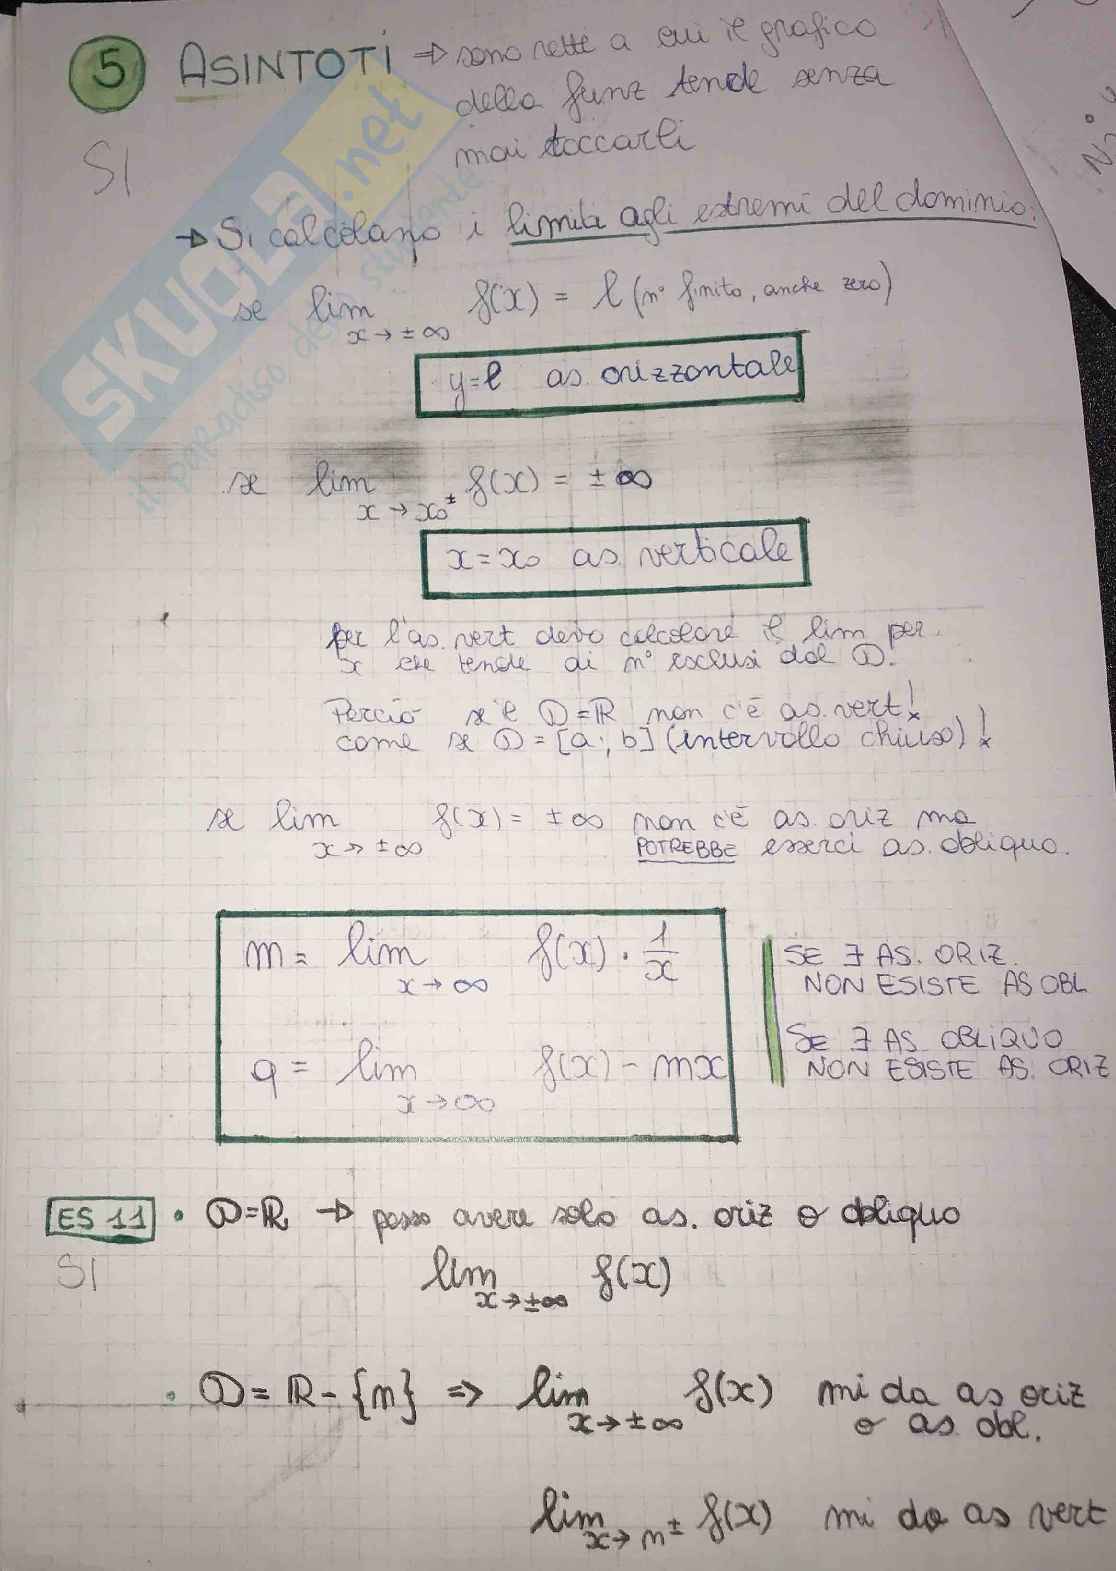 5 ASINTOTI → sono rette a cui il grafico
della funz tende senza
mai toccarli
SI
→ Si calcolano i limiti agli estremi del dominio:
se lim x→±∞ f(x) = l (n° finito, anche zero)
y=l as. orizzontale
se lim x→x₀± f(x) = ±∞
x=x₀ as. verticale
per l'as. vert devo calcolare il lim per
x che tende ai n° esclusi dal D.
Perciò se il D=ℝ non c'è as. vert!
come se D=[a;b] (intervallo chiuso)!
se lim x→±∞ f(x) = ±∞ non c'è as. oriz ma
POTREBBE esserci as. obliquo.
m = lim x→∞ f(x)·1/x
q = lim x→∞ f(x)-mx
SE ∃ AS. ORIZ.
NON ESISTE AS OBL
SE ∃ AS OBLIQUO
NON ESISTE AS. ORIZ
ES 11 • D=ℝ → posso avere solo as. oriz o obliquo
SI
lim x→±∞ f(x)
• D=ℝ-{n} => lim x→±∞ f(x) mi da as oriz
o as obl.
lim x→n± f(x) mi da as vert
SKUOLA.net
il paradiso dello studente